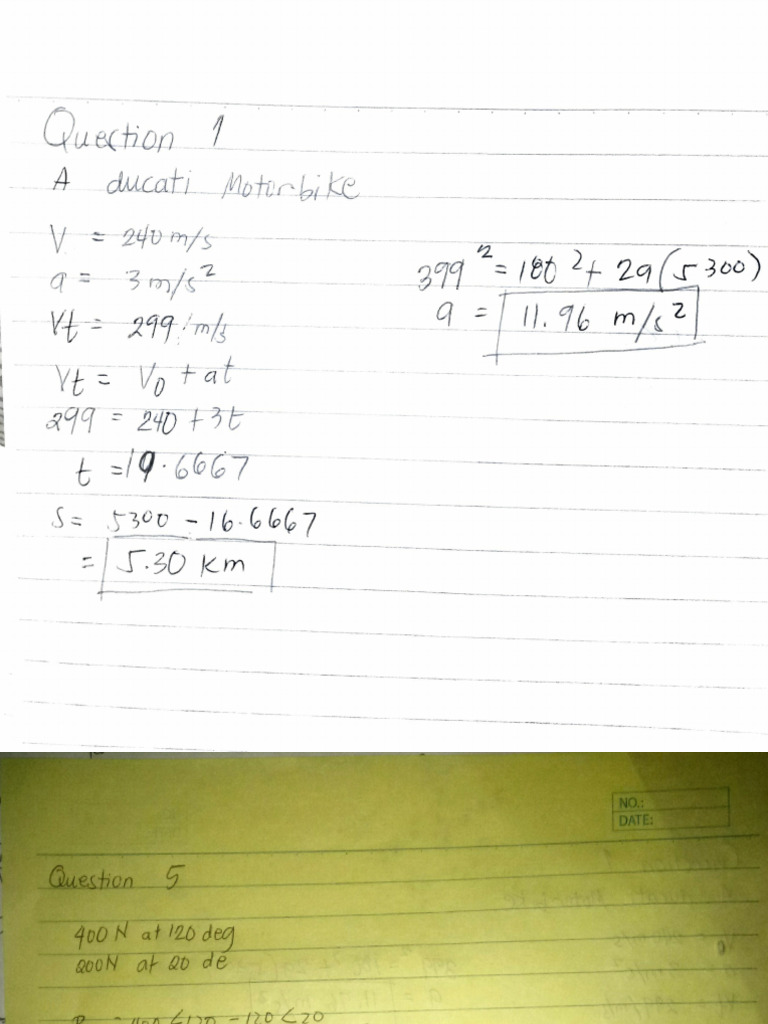 Question 1
A ducati Motorbike
V = 240 m/s
a = 3 m/s²
Vt = 299 m/s
Vt = V₀ + at
299 = 240 + 3t
t = 19.6667
S = 5300 - 16.6667
= 5.30 km
399² = 180² + 2a(5300)
a = 11.96 m/s²
NO.:
DATE:
Question 5
400 N at 120 deg
200N at 20 de